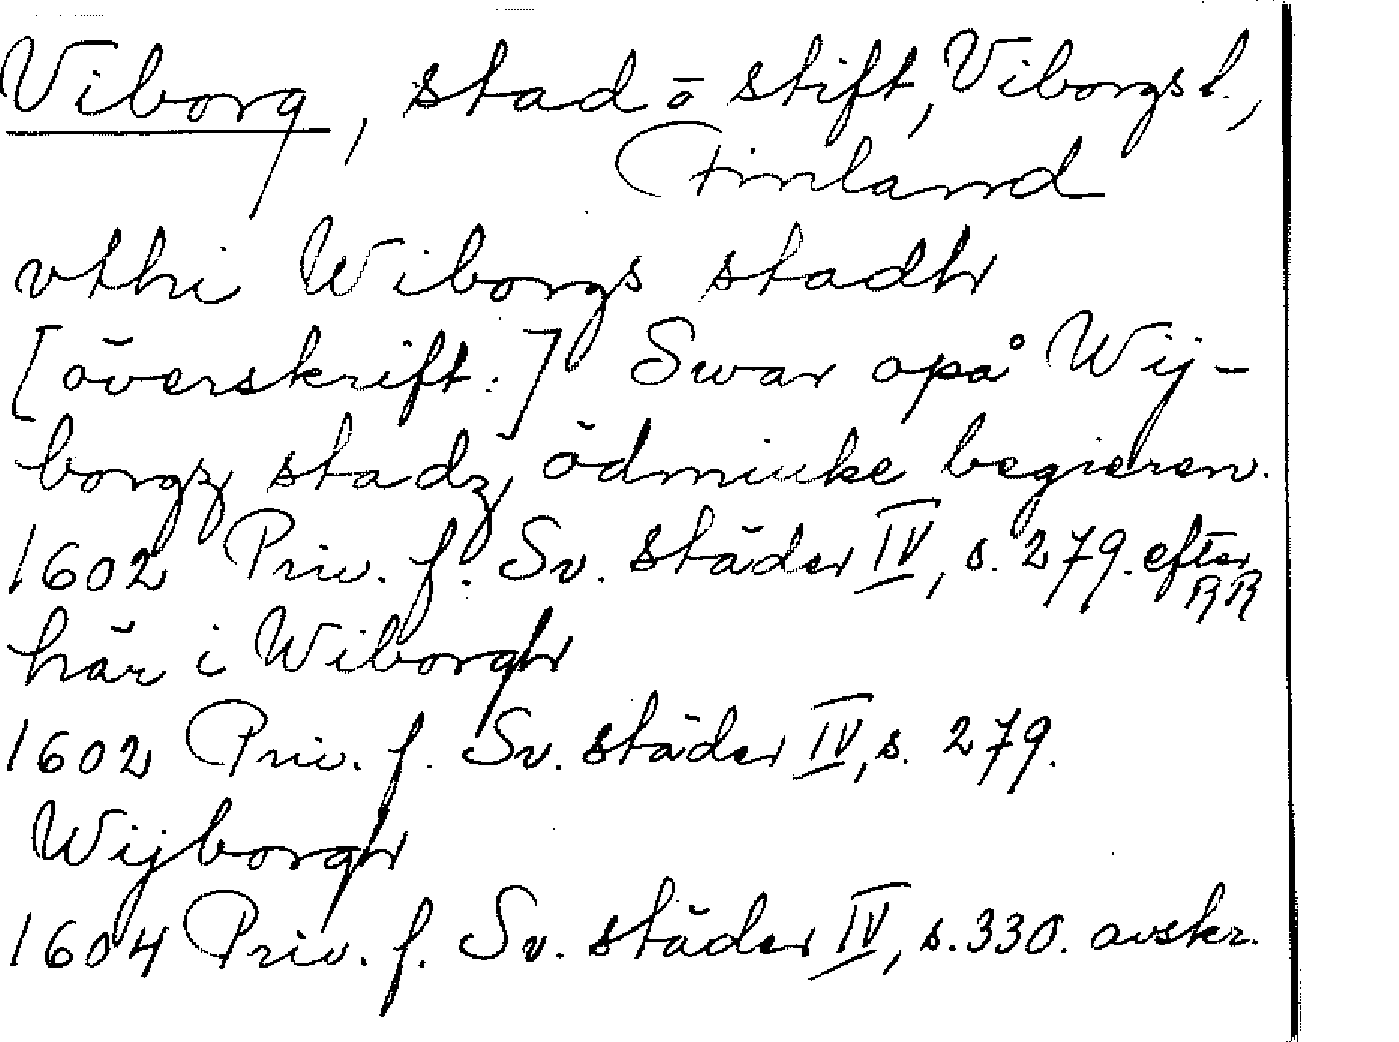 Viborg, stad o stift, Viborgs l.,
Finland
vthi Wiborgs stadh
[överskrift:] Swar opå Wij-
borgz stadz ödmiuke begieren.
1602 Priv. f. Sv. städer IV, s. 279. efter
RR
här i Wiborgh
1602 Priv. f. Sv. städer IV, s. 279.
Wijborgh
1604 Priv. f. Sv. städer IV, s. 330. avskr.